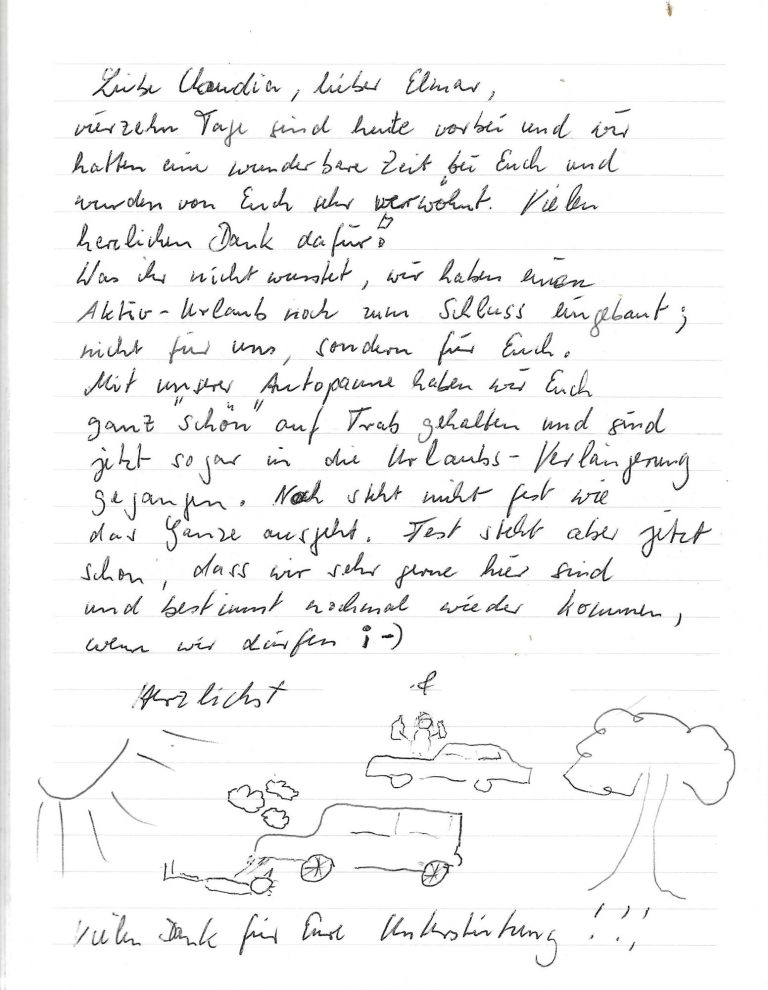 Liebe Claudia, lieber Elmar,
vierzehn Tage sind heute vorbei und wir
hatten eine wunderbare Zeit bei Euch und
wurden von Euch sehr verwöhnt. Vielen
herzlichen Dank dafür!
Was ihr nicht wusstet, wir haben einen
Aktiv-Urlaub noch zum Schluss eingebaut;
nicht für uns, sondern für Euch.
Mit unserer Autopanne haben wir Euch
ganz "schön" auf Trab gehalten und sind
jetzt sogar in die Urlaubs-Verlängerung
gegangen. Noch steht nicht fest wie
das Ganze ausgeht. Fest steht aber jetzt
schon, dass wir sehr gerne hier sind
und bestimmt nochmal wieder kommen,
wenn wir dürfen ;-)
Herzlichst
&
Vielen Dank für Eure Unterstützung !!!